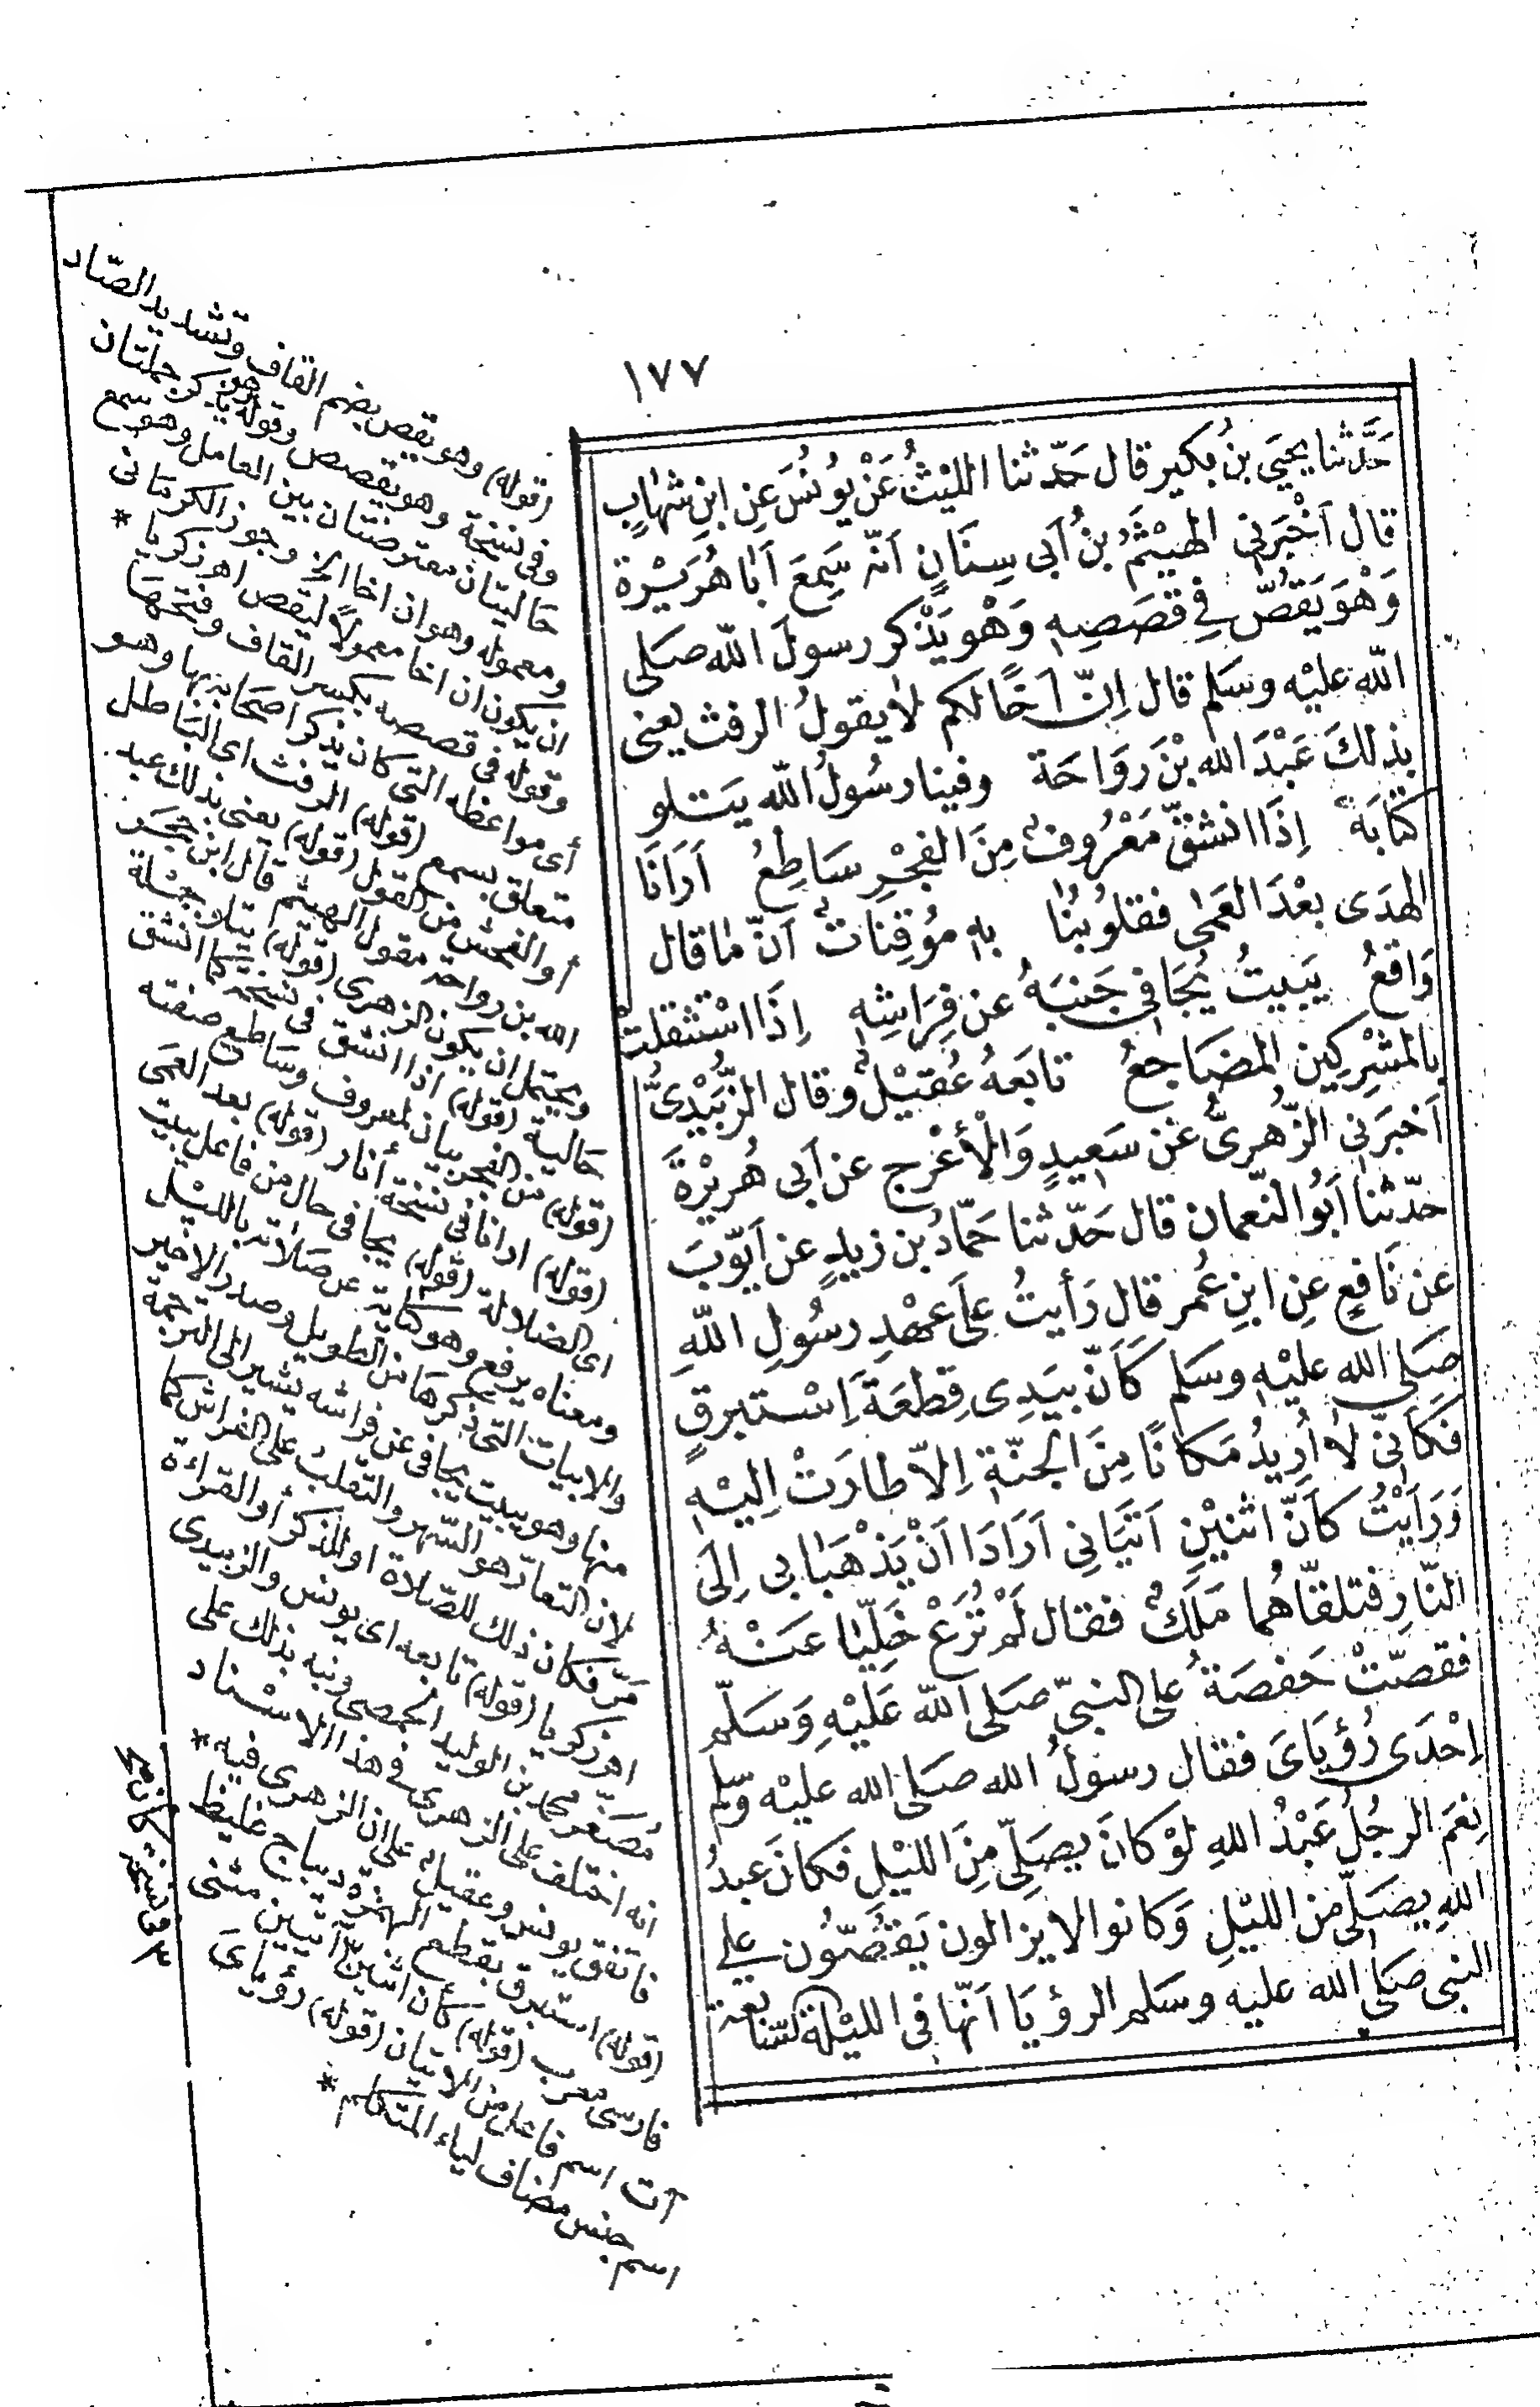 ١٧٧
حَدَّثنا يحيَى بنُ بكير قال حَدّثنا الليْثُ عَنْ يُونُسَ عَنِ ابنِ شهَابٍ
قال أَخْبَرَنِى الهيْثَمُ بنُ أَبى سِنَانٍ أَنّه سَمِعَ أَبَا هُرَيْرة
وَهْوَ يَقُصُّ فِى قصَصِهِ وَهْو يَذْكر رسولَ الله صَلى
الله عليْه وسَلم قال إِنّ أَخًا لكم لا يقولُ الرفث يعنى
بذلكَ عَبْدَ الله بْنَ رَوَاحَة وفينا رسُولُ الله يَتلو
كتَابَهُ إِذَا انشقّ مَعْرُوفٌ مِنَ الفجْرِ سَاطِعُ أَرَانَا
الهدَى بعْدَ العَمى فقلُوبُنَا بهِ مُوقِنَاتٌ أَنّ مَا قال
وَاقعُ يَبيتُ يُجَافِى جَنبَهُ عن فِرَاشِهِ إِذَا اسْتثقلتْ
بالمشْرِكِين المضَاجعُ تابَعَهُ عُقيْلٌ وقال الزُّبَيْدِىُّ
أَخبَرَنِى الزُّهرِىُّ عَن سَعِيدٍ وَالأَعْرَجِ عن أَبى هُريْرَةَ
حدّثنا أَبُو النّعمان قال حَدّثنا حَمّادُ بن زيدٍ عن أَيّوبَ
عن نَافِعٍ عنِ ابنِ عُمر قال رَأَيتُ عَلَى عَهْدِ رسُولِ اللهِ
صَلى الله عليْهِ وسَلم كَأَنّ بيَدِى قِطعَةَ إِسْتبرقٍ
فكأَنّى لا أُرِيدُ مَكانًا مِنَ الجنّةِ إِلاّ طارَتْ إِليْهِ
وَرَأَيْتُ كأَنّ اثنيْنِ أَتيَانِى أَرَادَا أَنْ يَذْهَبَا بى إِلَى
النّارِ فتلقّاهُما مَلَكٌ فقال لَمْ تُرَعْ خَلِّيَا عَنْهُ
فقصّتْ حَفصَةُ على النبىّ صَلى الله عَليْهِ وَسَلّم
إِحْدَى رُؤْيَاىَ فقال رسولُ الله صَلى الله عليْه وسّلم
نِعْمَ الرجُلُ عَبْدُ اللهِ لوْ كانَ يصَلّى مِنَ الليْلِ فكانَ عبدُ
اللهِ يصَلّى مِنَ الليْلِ وَكانوا لا يزالون يَقُصّون على
النبى صَلى الله عليه وسَلم الرؤيَا أَنّهَا فى الليْلة السّابعة
(قوله) وهو يقص بضم القاف وتشديد الصّاد
وفى نسخة وهو يقصص وقوله وهو يذكر جملتان
حاليتان معترضتان بين العامل وهو سمع
ومعموله وهو ان اخا الخ وجوز الكرمانى
ان يكون ان اخا معمولاً ليقص اهـ زكريا *
وقوله فى قصصه بكسر القاف وفتحها
أى مواعظه التى كان يذكر اصحابه بها وهو
متعلق بسمع (قوله) الرفث اى الباطل
أو الفحش من القول (قوله) يعنى بذلك عبد
الله بن رواحة مقول الهيثم قال ابن حجر
ويحتمل ان يكون الزهرى (قوله) يتلو جملة
حالية (قوله) اذا انشق فى نسخة كما انشق
(قوله) من الفجر بيان لمعروف وساطع صفته
(قوله) ارانا فى نسخة أنار (قوله) بعد العمى
اى الضلالة (قوله) يجافى حال من فاعل يبيت
ومعناه يرفع وهو كناية عن صلاته بالليل
والابيات التى ذكرها من الطويل وصدر الاخير
منها وهو يبيت يجافى عن فراشه يشير الى الترجمة
لان التعارّ هو السّهر والتقلب على الفراش كما
مَرّ فكان ذلك للصّلاة او للذكر أو القراءة
اهـ زكريا (قوله) تابعه اى يونس والزبيدى
مُصَغر محمد بن الوليد الحمصى ونبه بذلك على
انه اختلف على الزهرى فى هذا الاسناد
فاتفق يونس وعقيل على ان الزهرى فيه *
(قوله) استبرق بقطع الهمزة ديباج غليظ
فارسى معرب (قوله) كأن اثنين آتيين مثنى
آت اسم فاعل من الاتيان (قوله) رؤياىَ
اسم جنس مضاف لياء المتكلم *